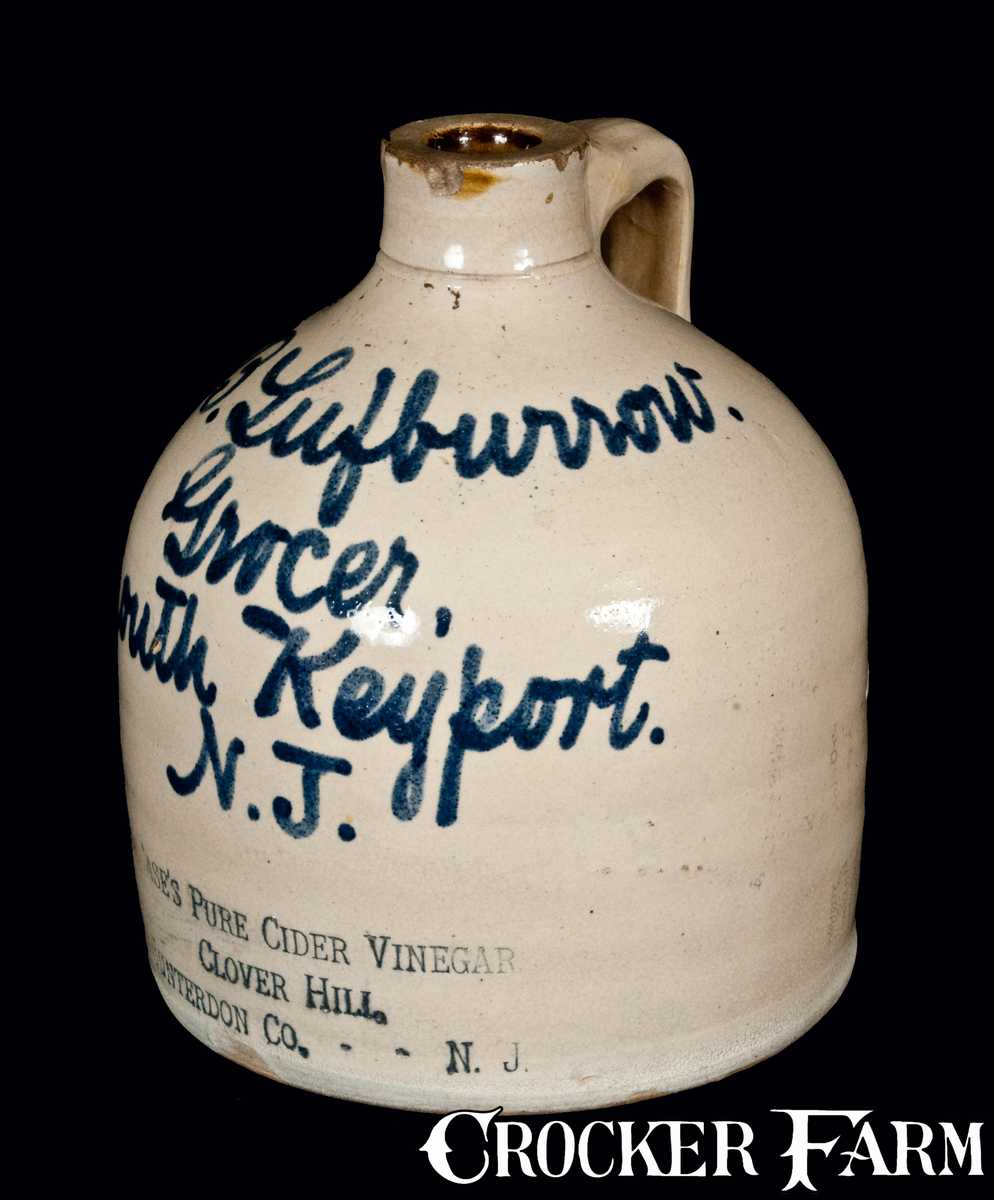 Lufburrow.
Grocer,
Keyport.
N.J.
PURE CIDER VINEGAR
CLOVER HILL.
CO. - - N. J.
CROCKER FARM